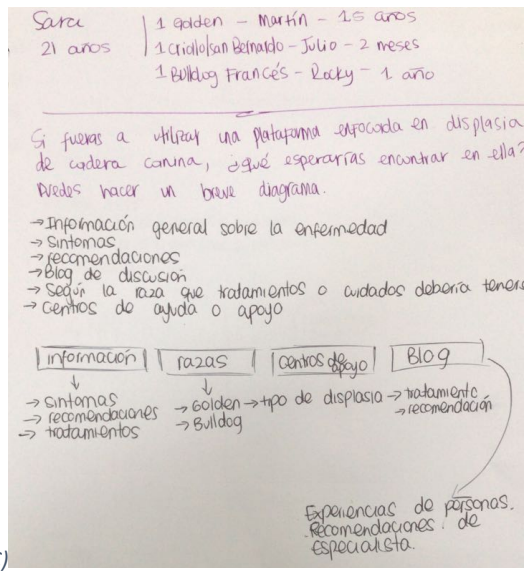 Sara
21 años
1 Golden - Martín - 15 años
1 criollo/san Bernardo - Julio - 2 meses
1 Bulldog Francés - Rocky - 1 año
Si fueras a utilizar una plataforma enfocada en displasia
de cadera canina, ¿qué esperarías encontrar en ella?
Puedes hacer un breve diagrama.
→ Información general sobre la enfermedad
→ Sintomas
→ recomendaciones
→ Blog de discusión
→ Según la raza que tratamientos o cuidados debería teners
→ Centros de ayuda o apoyo
información razas Centros de apoyo Blog
→ sintomas
→ recomendaciones
→ tratamientos
→ Golden → tipo de displasia → tratamiento
→ Bulldog → recomendación
Experiencias de personas.
Recomendaciones de
especialista.